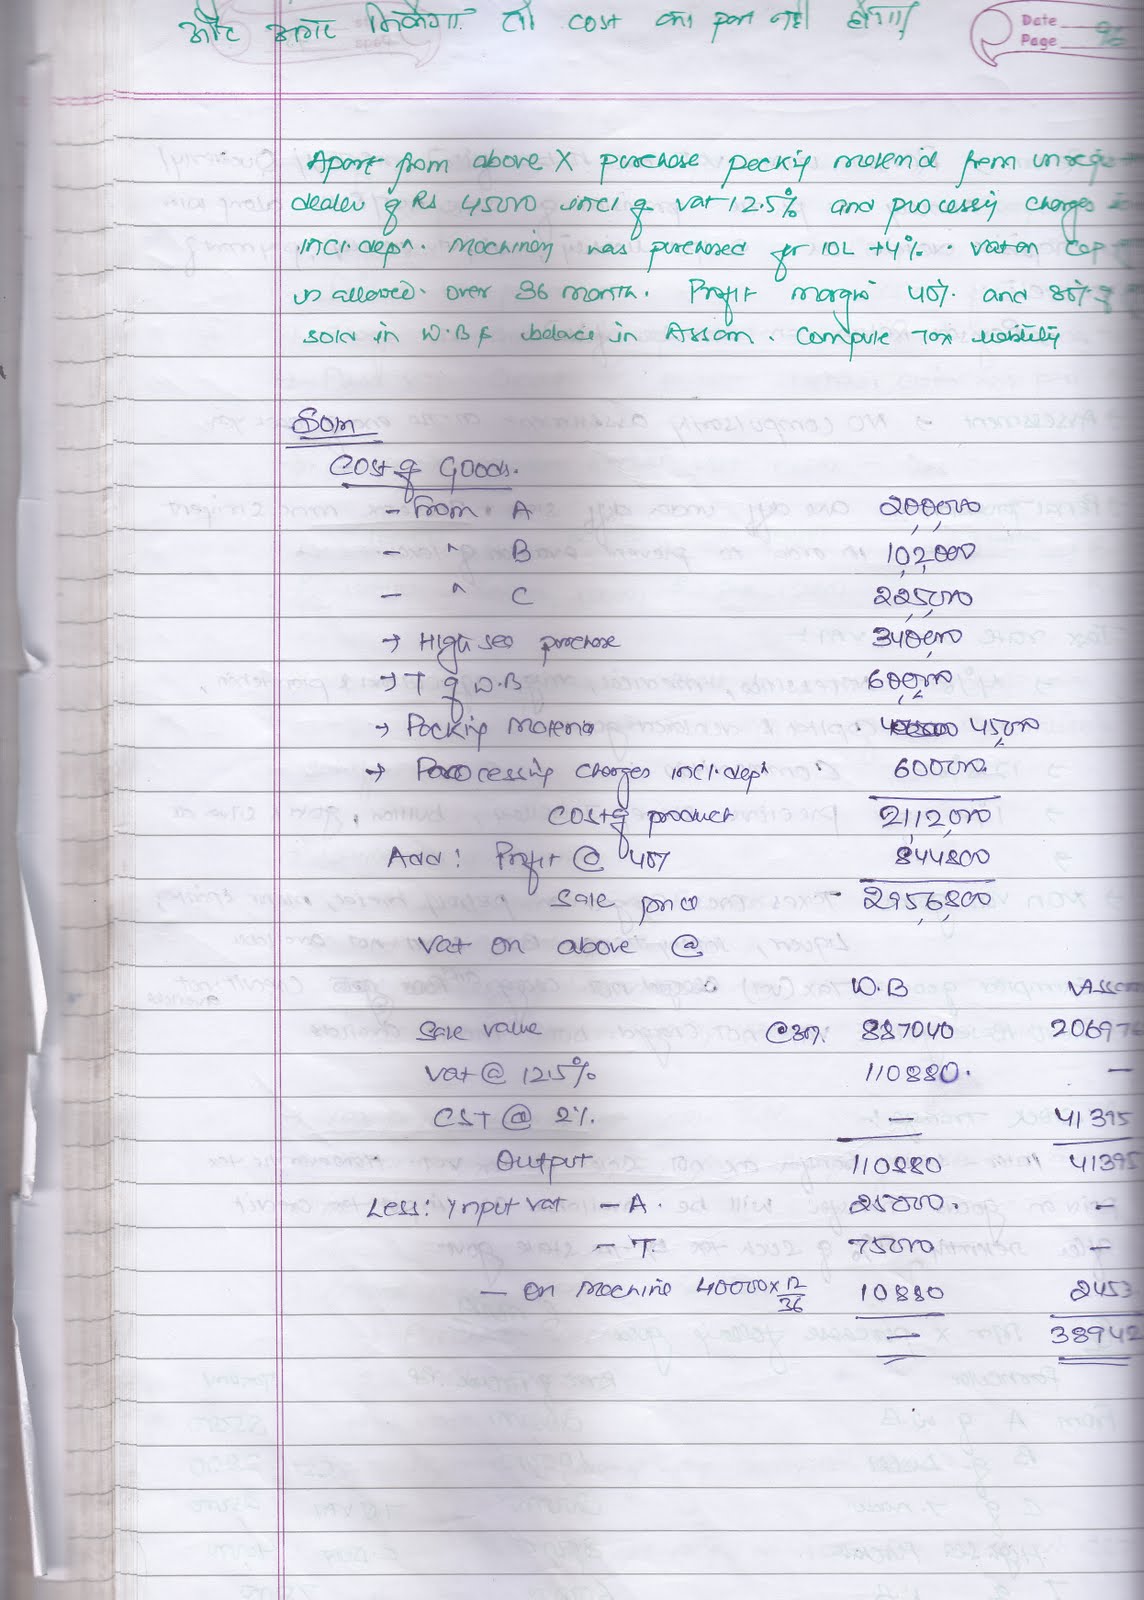 और अगर मिलेगा तो cost का part नही होगा
Date
Page 96
Apart from above X purchase packig material from unregi
dealer of Rs 45000 incl of vat 12.5% and processig charges
incl. depn. Machinery was purchased for 10L +4%. Vat on cap
is allowed over 36 month. Profit margin 40% and 30% of
sold in W.B & balance in Assam. Compute Tax liability
Soln
Cost of Goods.
- From A 200000
- " B 102000
- " C 225000
→ High sea purchase 340000
→ T of W.B 600000
→ Packig Material 45000
→ Processing charges incl. depn 600000
Cost of product 2112000
Add: Profit @ 40% 844800
Sale price 2956800
Vat on above @
W.B Assam
Sale value @30% 887040 206976
Vat @ 12.5% 110880. —
CST @ 2% — 41395
Output 110880 41395
Less: Input vat - A. 25000. -
- T. 75000 -
- on machine 40000 x 12/36 10880 2453
— 38942